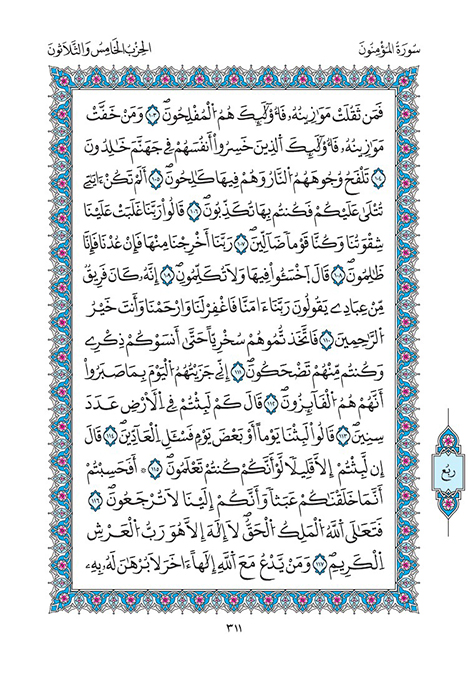 سُورَةُ المُؤْمِنُونَ
الحِزْبُ الخَامِسُ وَالثَّلَاثُونَ
فَمَن ثَقُلَتْ مَوَٰزِينُهُۥ فَأُوْلَٰٓئِكَ هُمُ اُلْمُفْلِحُونَۖ ١٠٣ وَمَنْ خَفَّتْ
مَوَٰزِينُهُۥ فَأُوْلَٰٓئِكَ اَلذِينَ خَسِرُوٓاْ أَنفُسَهُمْ فِے جَهَنَّمَ خَٰلِدُونَ
١٠٤ تَلْفَحُ وُجُوهَهُمُ اُلنَّارُ وَهُمْ فِيهَا كَٰلِحُونَۖ ١٠٥ أَلَمْ تَكُنَ ءَايَٰتِے
تُتْلَىٰ عَلَيْكُمْ فَكُنتُم بِهَا تُكَذِّبُونَۖ ١٠٦ قَالُواْ رَبَّنَا غَلَبَتْ عَلَيْنَا
شِقْوَتُنَا وَكُنَّا قَوْماً ضَآلِّينَۖ ١٠٧ رَبَّنَآ أَخْرِجْنَا مِنْهَا فَإِنْ عُدْنَا فَإِنَّا
ظَٰلِمُونَۖ ١٠٨ قَالَ اَخْسَـُٔواْ فِيهَا وَلَا تُكَلِّمُونِۖ ١٠٩ إِنَّهُۥ كَانَ فَرِيقٌ
مِّنْ عِبَادِے يَقُولُونَ رَبَّنَآ ءَامَنَّا فَاغْفِرْ لَنَا وَارْحَمْنَا وَأَنتَ خَيْرُ
اُلرَّٰحِمِينَۖ ١١٠ فَاتَّخَذتُّمُوهُمْ سُخْرِيّاً حَتَّىٰٓ أَنسَوْكُمْ ذِكْرِے
وَكُنتُم مِّنْهُمْ تَضْحَكُونَۖ ١١١ إِنِّے جَزَيْتُهُمُ اُلْيَوْمَ بِمَا صَبَرُوٓاْ
أَنَّهُمْ هُمُ اُلْفَآئِزُونَۖ ١١٢ قَٰلَ كَمْ لَبِثْتُمْ فِے اِلَارْضِ عَدَدَ
سِنِينَۖ ١١٣ قَالُواْ لَبِثْنَا يَوْماً أَوْ بَعْضَ يَوْمٍ فَسْـَٔلِ اِلْعَآدِّينَۖ ١١٤ قَٰلَ
إِن لَّبِثْتُمْ إِلَّا قَلِيلاً لَّوْ أَنَّكُمْ كُنتُمْ تَعْلَمُونَۖ ١١٥ ۞ أَفَحَسِبْتُمْ
أَنَّمَا خَلَقْنَٰكُمْ عَبَثاً وَأَنَّكُمْ إِلَيْنَا لَا تُرْجَعُونَۖ ١١٦
فَتَعَٰلَى اَللَّهُ اُلْمَلِكُ اُلْحَقُّۖ لَآ إِلَٰهَ إِلَّا هُوَ رَبُّ اُلْعَرْشِ
اِلْكَرِيمِۖ ١١٧ وَمَنْ يَّدْعُ مَعَ اَللَّهِ إِلَٰهاً ـ اخَرَ لَا بُرْهَٰنَ لَهُۥ بِهِۦ
ربع
٣١١